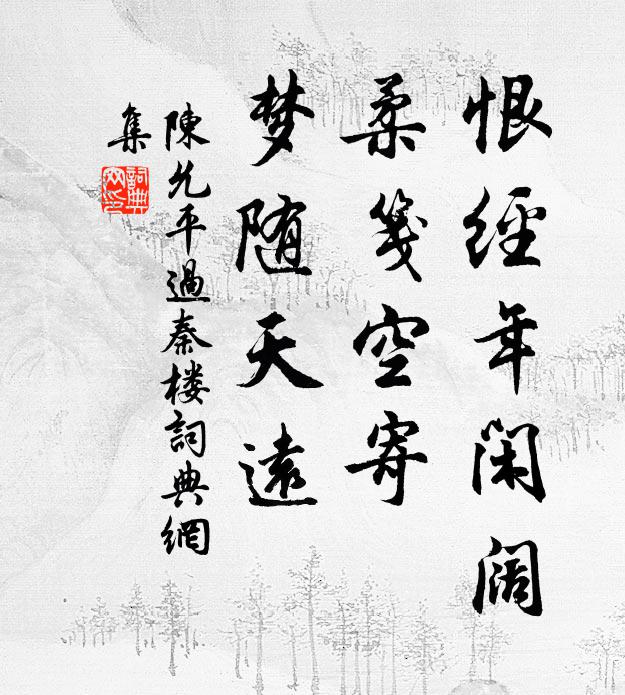 恨經年闲阔
柔笺空寄
梦随天遠
陳允平過秦楼詞典網
集
詞典
网印